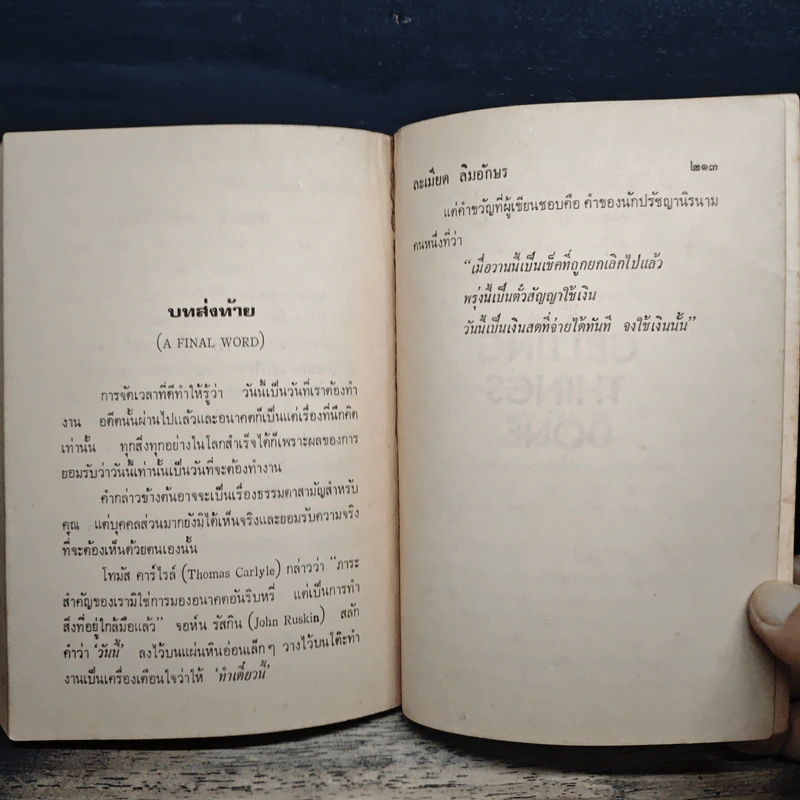 บทส่งท้าย
(A FINAL WORD)
การจัดเวลาที่ดีทำให้รู้ว่า วันนี้เป็นวันที่เราต้องทำ
งาน อดีตนั้นผ่านไปแล้วและอนาคตก็เป็นแต่เรื่องที่นึกคิด
เท่านั้น ทุกสิ่งทุกอย่างในโลกสำเร็จได้ก็เพราะผลของการ
ยอมรับว่าวันนี้เท่านั้นเป็นวันที่จะต้องทำงาน
คำกล่าวข้างต้นอาจจะเป็นเรื่องธรรมดาสามัญสำหรับ
คุณ แต่บุคคลส่วนมากยังมิได้เห็นจริงและยอมรับความจริง
ที่จะต้องเห็นด้วยตนเองนั้น
โทมัส คาร์ไรล์ (Thomas Carlyle) กล่าวว่า “ภาระ
สำคัญของเรามิใช่การมองอนาคตอันริบหรี่ แต่เป็นการทำ
สิ่งที่อยู่ใกล้มือแล้ว” จอห์น รัสกิน (John Ruskin) สลัก
คำว่า ‘วันนี้’ ลงไว้บนแผ่นหินอ่อนเล็กๆ วางไว้บนโต๊ะทำ
งานเป็นเครื่องเตือนใจว่าให้ ‘ทำเดี๋ยวนี้’
ละเมียด ลิมอักษร ๒๑๓
แต่คำขวัญที่ผู้เขียนชอบคือ คำของนักปรัชญานิรนาม
คนหนึ่งที่ว่า
“เมื่อวานนี้เป็นเช็คที่ถูกยกเลิกไปแล้ว
พรุ่งนี้เป็นตั๋วสัญญาใช้เงิน
วันนี้เป็นเงินสดที่จ่ายได้ทันที จงใช้เงินนั้น”